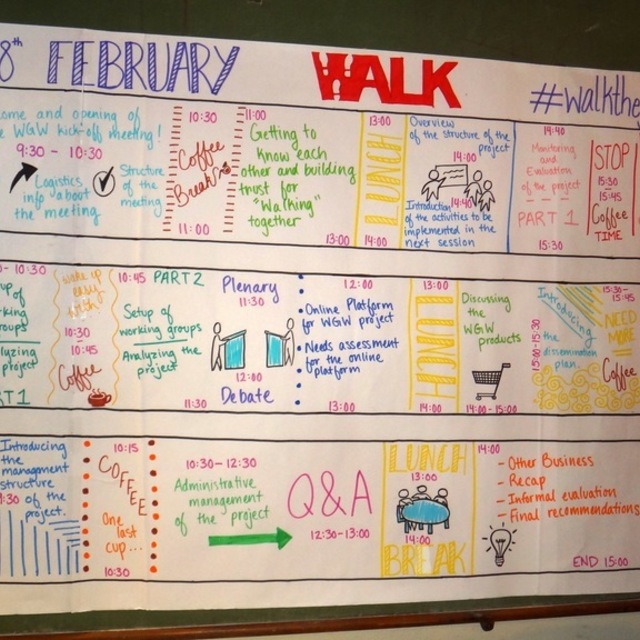 8th FEBRUARY
WALK
#walkthe
ome and opening of
e WGW kick-off meeting!
9:30 - 10:30
Logistics
info about
the meeting
Structure
of the
meeting
10:30
Coffee
Break?
11:00
11:00
Getting to
know each
other and building
trust for
"Walking"
together
13:00
13:00
LUNCH
14:00
Overview
of the structure of the
project
14:00
14:40
Introduction
of the activities to be
implemented in the
next session
14:40
Monitoring
and
Evaluation
of the project
PART 1
15:30
STOP
15:30
15:45
Coffee
TIME
- 10:30
up of
king
roups
lyzing
project
T1
wake up
easy
with
10:30
10:45
Coffee
10:45 PART 2
Setup of
working groups
Analyzing the
project
11:30
Plenary
11:30
12:00
Debate
12:00
• Online Platform
for WGW project
• Needs assessment
for the online
platform
13:00
13:00
LUNCH
14:00
Discussing
the
WGW
products
14:00 - 15:00
15:00-15:30
Introducing
the
dissemination
plan.
15:30-
15:45
NEED
MORE
Coffee
Introducing
the
managment
structure
9:30 of the
project.
10:15
COFFEEE
One
last
cup...
10:30
10:30 - 12:30
Administrative
management
of the project
Q&A
12:30-13:00
LUNCH
13:00
14:00
BREAK
14:00
- Other Business
- Recap
- Informal evaluation
- Final recommendations
END 15:00